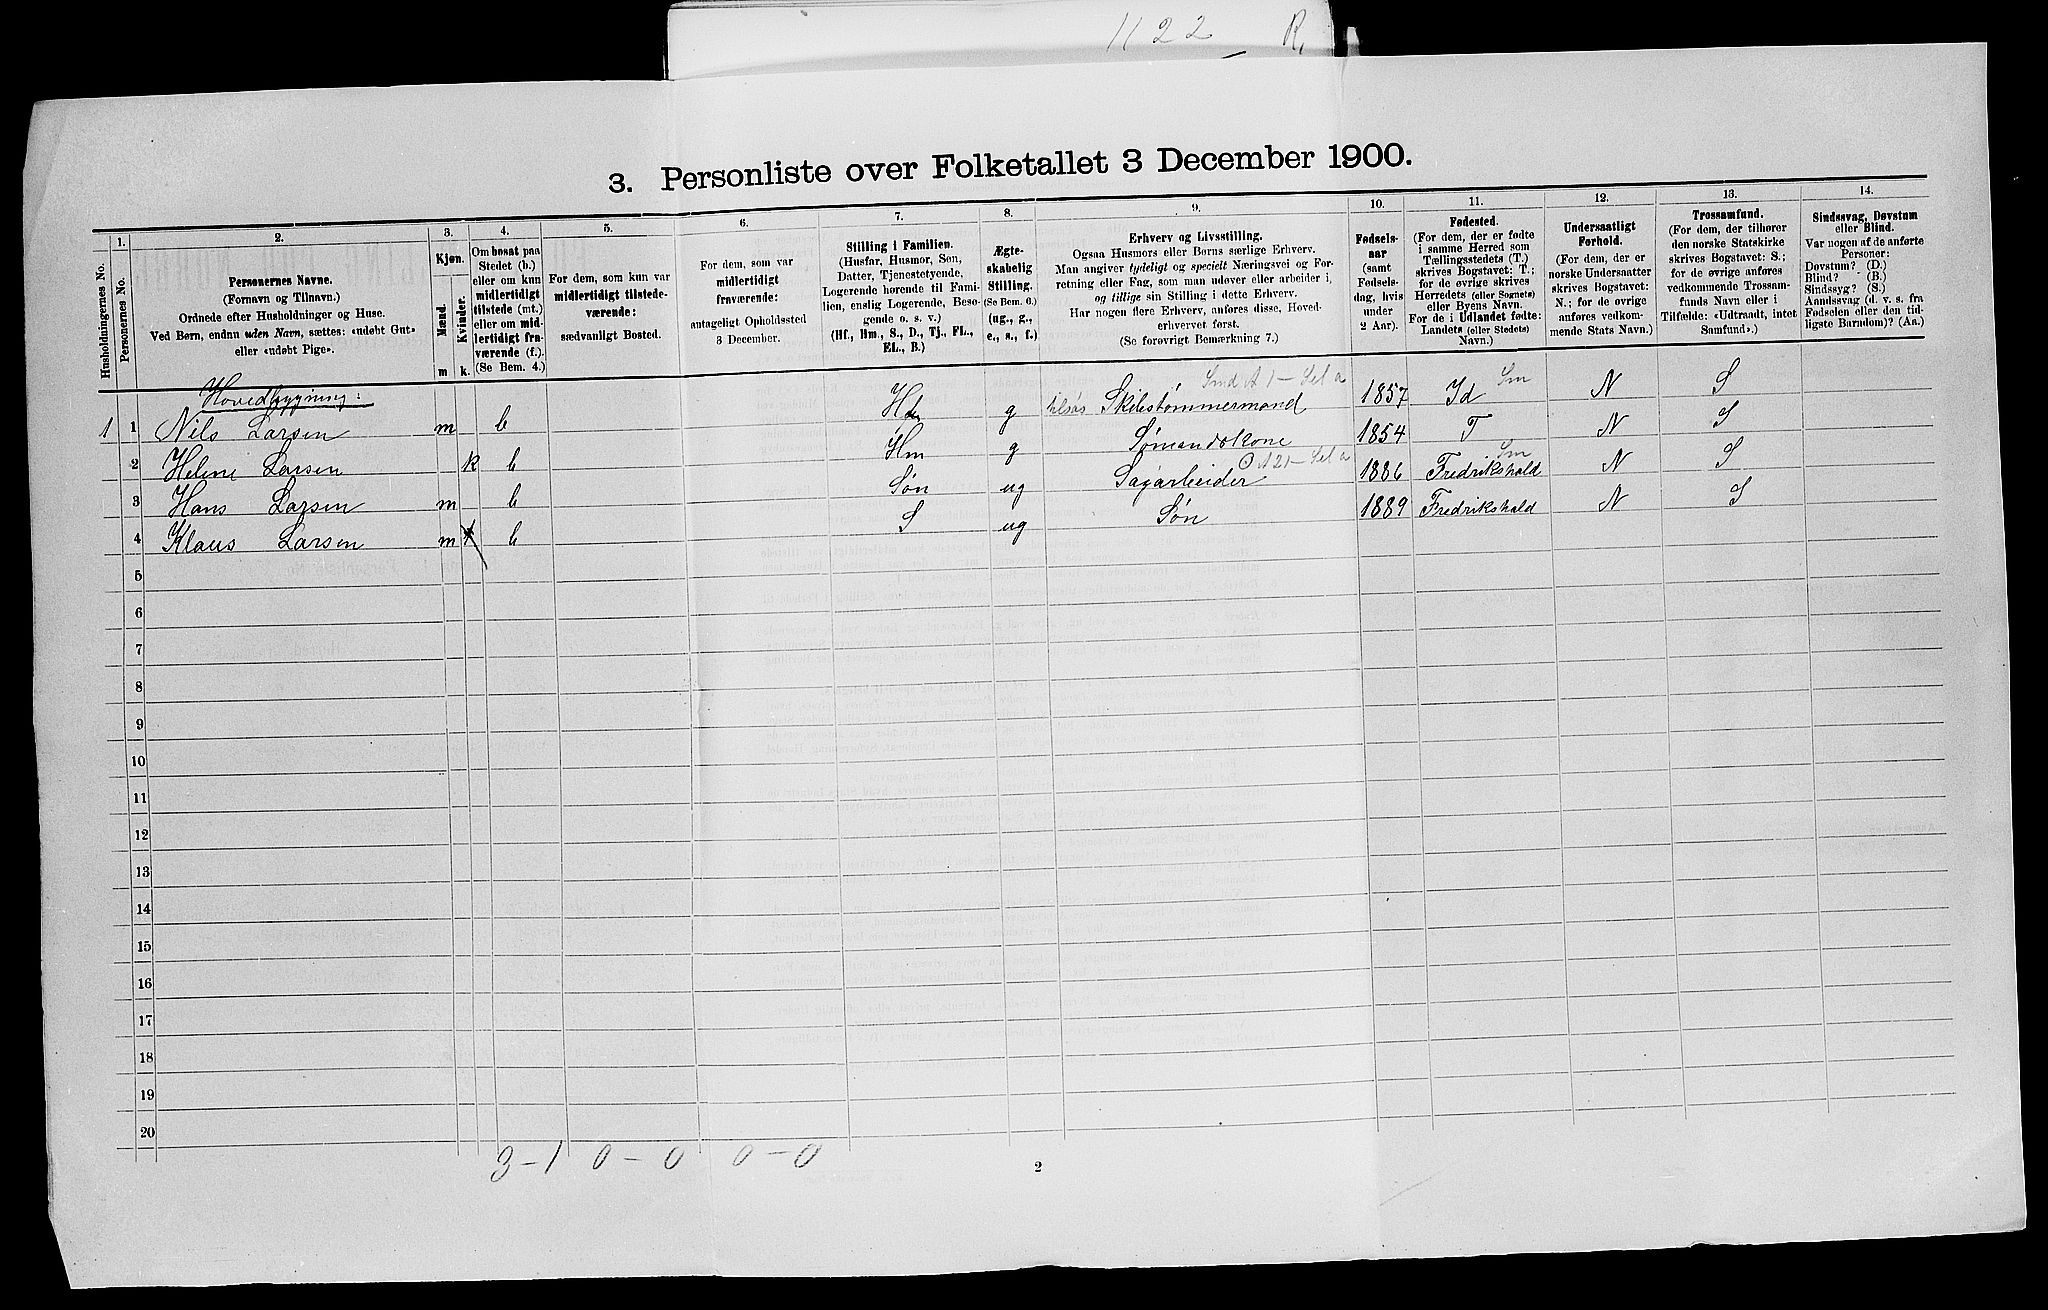 1122 R.
3. Personliste over Folketallet 3 December 1900.
Husholdningernes No.
1.
Personernes No.
2.
Personernes Navne.
(Fornavn og Tilnavn.)
Ordnede efter Husholdninger og Huse.
Ved Børn, endnu uden Navn, sættes: «udøbt Gut»
eller «udøbt Pige».
3.
Kjøn.
Mænd.
Kvinder.
m k.
4.
Om bosat paa
Stedet (b.)
eller om kun
midlertidigt
tilstede (mt.)
eller om mid-
lertidigt fra-
værende (f.).
(Se Bem. 4.)
5.
For dem, som kun var
midlertidigt tilstede-
værende:
sædvanligt Bosted.
6.
For dem, som var
midlertidigt
fraværende:
antageligt Opholdssted
3 December.
7.
Stilling i Familien.
(Husfar, Husmor, Søn,
Datter, Tjenestetyende,
Logerende hørende til Fami-
lien, enslig Logerende, Besø-
gende o. s. v.)
(Hf., Hm., S., D., Tj., FL.,
EL., B.)
8.
Ægte-
skabelig
Stilling.
(Se Bem. 6.)
(ug., g.,
e., s., f.)
9.
Erhverv og Livsstilling.
Ogsaa Husmors eller Børns særlige Erhverv.
Man angiver tydeligt og specielt Næringsvei og For-
retning eller Fag, som man udøver eller arbeider i,
og tillige sin Stilling i dette Erhverv.
Har nogen flere Erhverv, anføres disse, Hoved-
erhvervet først.
(Se forøvrigt Bemærkning 7.)
10.
Fødsels-
aar
(samt
Fødsels-
dag, hvis
under
2 Aar).
11.
Fødested.
(For dem, der er fødte
i samme Herred som
Tællingsstedets (T.)
skrives Bogstavet: T.;
for de øvrige skrives
Herredets (eller Sognets)
eller Byens Navn.
For de i Udlandet fødte:
Landets (eller Stedets)
Navn.)
12.
Undersaatligt
Forhold.
(For dem, der er
norske Undersaatter
skrives Bogstavet:
N.; for de øvrige
anføres vedkom-
mende Stats Navn.)
13.
Trossamfund.
(For dem, der tilhører
den norske Statskirke
skrives Bogstavet: S.;
for de øvrige anføres
vedkommende Trossam-
funds Navn eller i
Tilfælde: «Udtraadt, intet
Samfund».)
14.
Sindssvag, Døvstum
eller Blind.
Var nogen af de anførte
Personer:
Døvstum? (D.)
Blind? (B.)
Sindssyg? (S.)
Aandssvag (d. v. s. fra
Fødselen eller den tid-
ligste Barndom)? (Aa.)
Hovedbygning:
1 1 Nils Larsen m b g Skibstømmermand 1857 Id Sm N S
2 Helene Larsen k b Hm g Sømandskone 1854 T N S
3 Hans Larsen m b Søn ug Sagarbeider 1886 Fredrikshald Sm N S
4 Klaus Larsen m b S ug Søn 1889 Fredrikshald N S
5
6
7
8
9
10
11
12
13
14
15
16
17
18
19
20
3-1 0-0 0-0
2